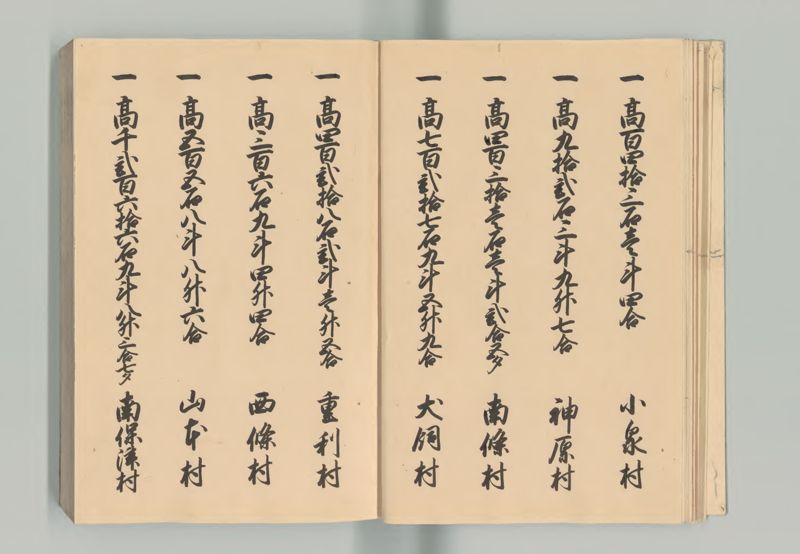 一 高百四拾三石壱斗四合 小泉村
一 高九拾弐石三斗九升七合 神原村
一 高四百三拾壱石壱斗弐合五夕 南條村
一 高七百弐拾七石九斗五升九合 犬飼村
一 高四百弐拾八石弐斗壱升五合 重利村
一 高三百六石九斗四升四合 西條村
一 高五百五石八斗八升六合 山本村
一 高千弐百六拾六石九斗八升三合七夕 南保津村